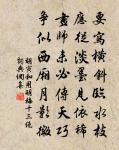 要寫橫斜臨水枝
應從淡墨見依稀
畫師未必傳天巧
爭似西廂月影微
胡寅和用明梅十三絕
詞典網集